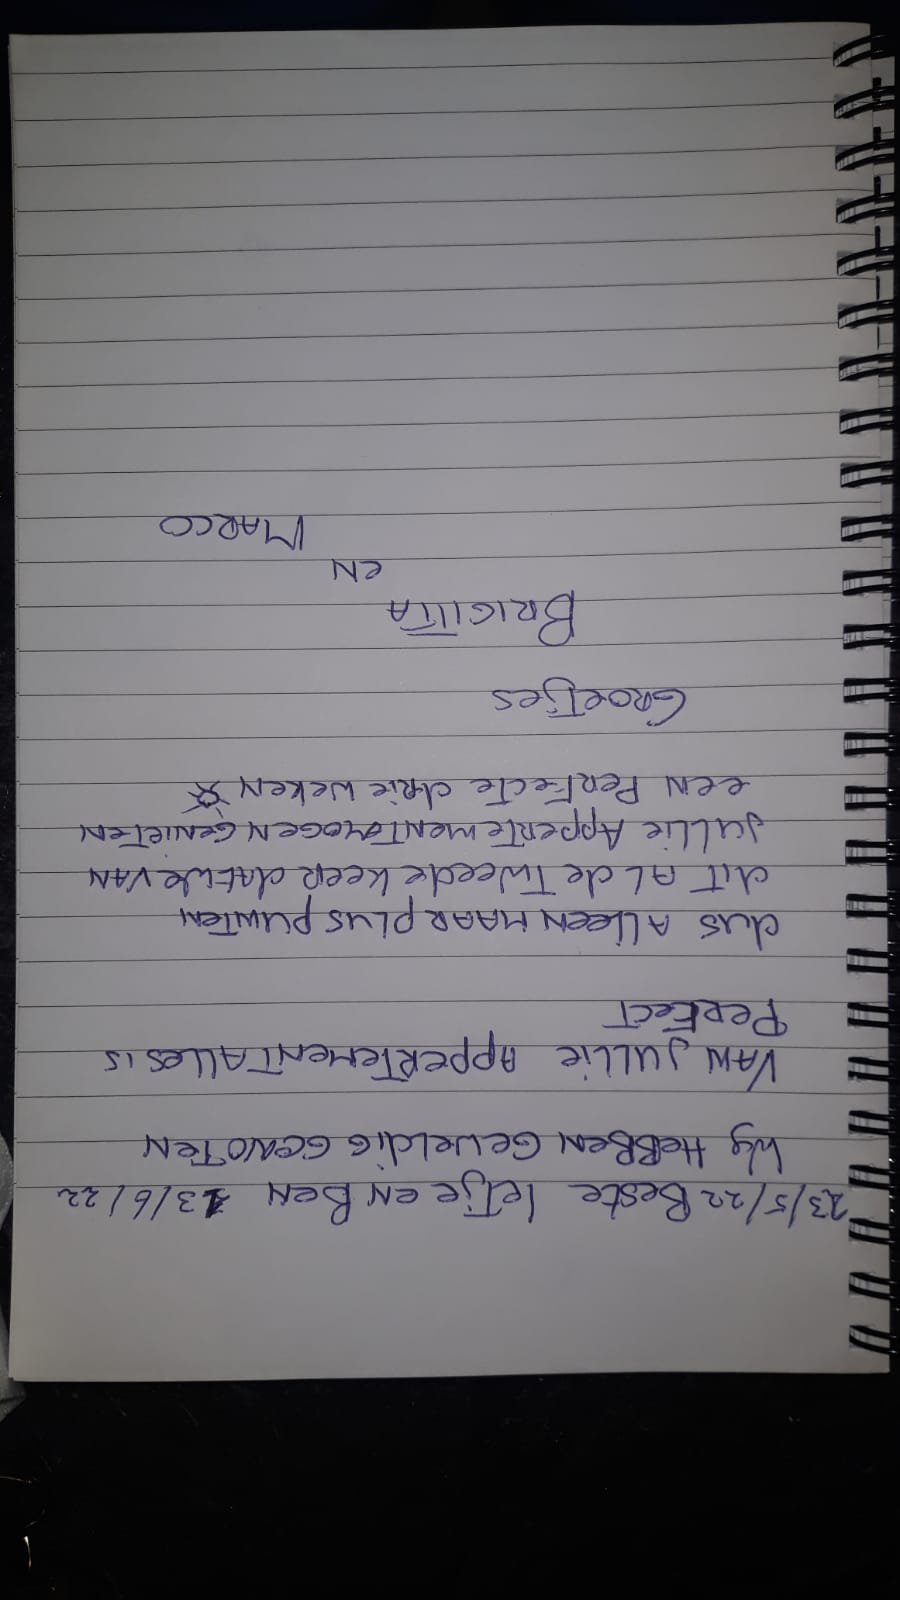 23/5/22 Beste Ietje en Ben 13/6/22
Wy HeBBen GeweldiG GenoTen
VAN jullie AppeRTemenT Alles is
PeRfecT
dus Alleen mAAR plus punTen
diT AL de Tweede keeR dAT we VAN
jullie AppeRTemenT mogen GenieTen
een PeRfecTe dRie weken
GRoeTjes
BRIGITTA
en
MARCO